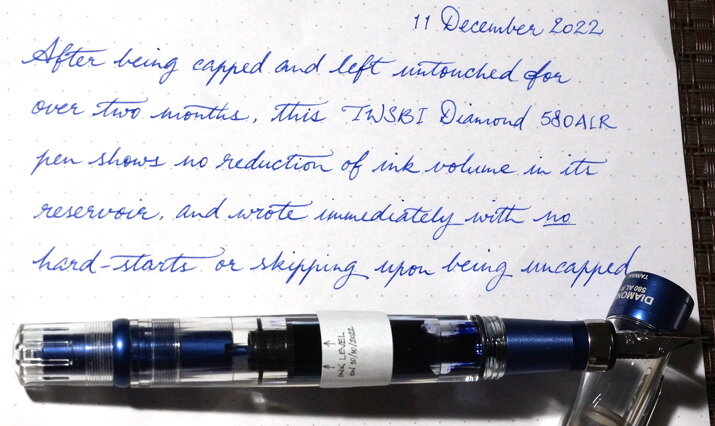 11 December 2022
After being capped and left untouched for
over two months, this TWSBI Diamond 580ALR
pen shows no reduction of ink volume in its
reservoir, and wrote immediately with no
hard-starts or skipping upon being uncapped
DIAMON
580 AL R
TAIWAN
INK LEVEL
ON 10/10/2022